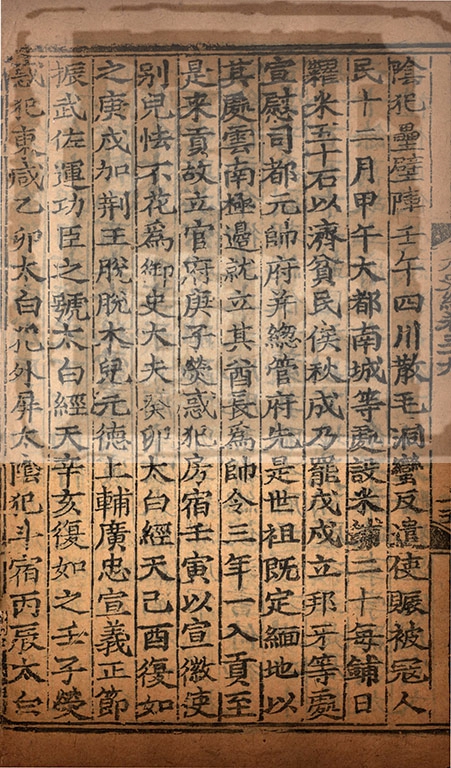 陰犯壘壁陣壬午四川散毛洞蠻反遣使賑被冦人
民十二月甲午大都南城等處設米鋪二十每鋪日
糶米五十石以濟貧民俟秋成乃罷戊戌立邦牙等處
宣慰司都元帥府并緫管府先是世祖既定緬地以
其處雲南極邊就立其酋長爲帥令三年一入貢至
是來貢故立官府庚子熒惑犯房宿壬寅以宣徽使
别兒怯不花爲御史大夫癸卯太白經天己酉復如
之庚戌加荆王脫脫木兒元德上輔廣忠宣義正節
振武佐運功臣之號太白經天辛亥復如之壬子熒
惑犯東咸乙卯太白犯外屏太陰犯斗宿丙辰太白